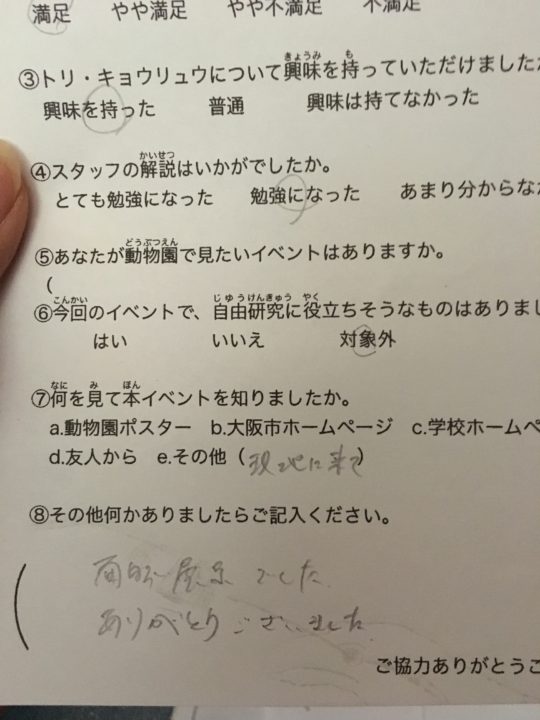 満足 やや満足 やや不満足 不満足
③トリ・キョウリュウについて興味を持っていただけました
興味を持った 普通 興味は持てなかった
④スタッフの解説はいかがでしたか。
とても勉強になった 勉強になった あまり分からな
⑤あなたが動物園で見たいイベントはありますか。
(
⑥今回のイベントで、自由研究に役立ちそうなものはありまし
はい いいえ 対象外
⑦何を見て本イベントを知りましたか。
a.動物園ポスター b.大阪市ホームページ c.学校ホームペ
d.友人から e.その他(現地に来て)
⑧その他何かありましたらご記入ください。
(展示でした
ありがとうございました
ご協力ありがとうご